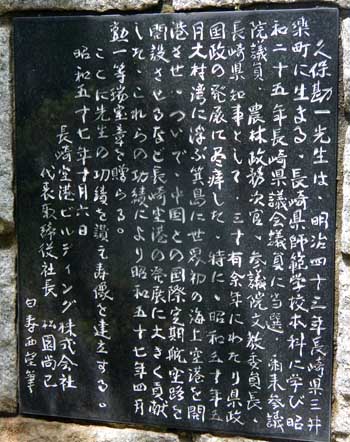 久保勘一先生は、明治四十三年長崎県三井
楽町に生まる。長崎県師範学校本科に学び昭
和二十五年長崎県議会議員に当選、爾来参議
院議員、農林政務次官、参議院文教委員長、
長崎県知事として、三十有余年にわたり県政
国政の発展に尽瘁した。特に、昭和五十年五
月大村湾に浮ぶ箕島に世界初の海上空港を開
港させ、ついで、中国との国際定期航空路を
開設させるなど長崎空港の発展に大きく貢献
した。これらの功績により昭和五十七年四月
勲一等瑞宝章を贈らる。
ここに先生の功績を讃え寿像を建立する。
昭和五十七年十月六日
長崎空港ビルディング株式会社
代表取締役社長 松園尚己
白寿西望筆